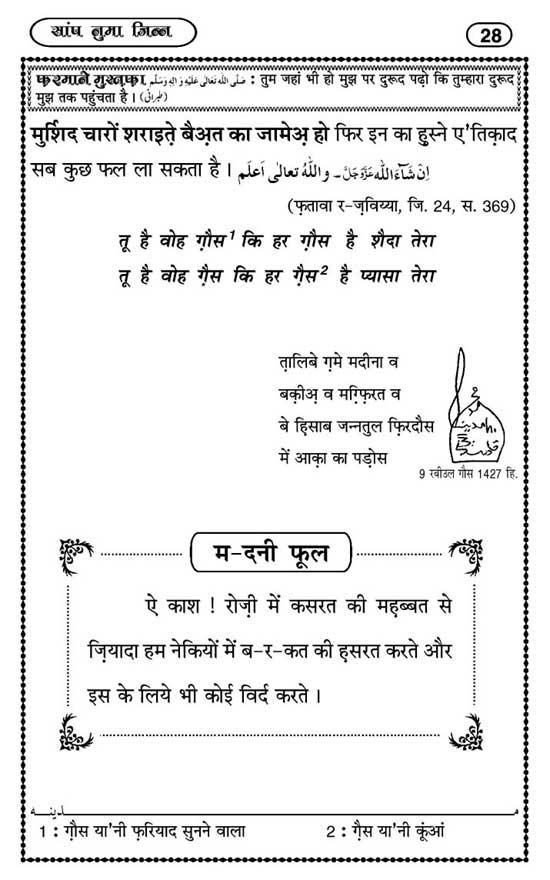 सांप नुमा जिन्न
28
फ़रमाने मुस्त़फ़ा صَلَّى اللهُ تَعَالٰى عَلَيْهِ وَاٰلِهٖ وَسَلَّم : तुम जहां भी हो मुझ पर दुरूद पढ़ो कि तुम्हारा दुरूद
मुझ तक पहुंचता है । (طبرانی)
मुर्शिद चारों शराइत़े बैअ़त का जामेअ़ हो फिर इन का हुस्ने ए'तिक़ाद
सब कुछ फल ला सकता है । اِنْ شَآءَ اللّٰه عَزَّوَجَلَّ ۔ واللّٰهُ تعالٰی اَعلَم
(फ़तावा र-ज़विय्या, जि. 24, स. 369)
तू है वोह ग़ौस¹ कि हर ग़ौस है शैदा तेरा
तू है वोह ग़ैस कि हर ग़ैस² है प्यासा तेरा
त़ालिबे ग़मे मदीना व
बक़ीअ़ व मग़्फ़िरत व
बे हि़साब जन्नतुल फ़िरदौस
में आक़ा का पड़ोस
9 रबीउ़ल ग़ौस 1427 हि.
म-दनी फूल
ऐ काश ! रोज़ी में कसरत की मह़ब्बत से
ज़ियादा हम नेकियों में ब-र-कत की ह़सरत करते और
इस के लिये भी कोई विर्द करते ।
مـــدينـــه
1 : ग़ौस या'नी फ़रियाद सुनने वाला
2 : ग़ैस या'नी कूंआं